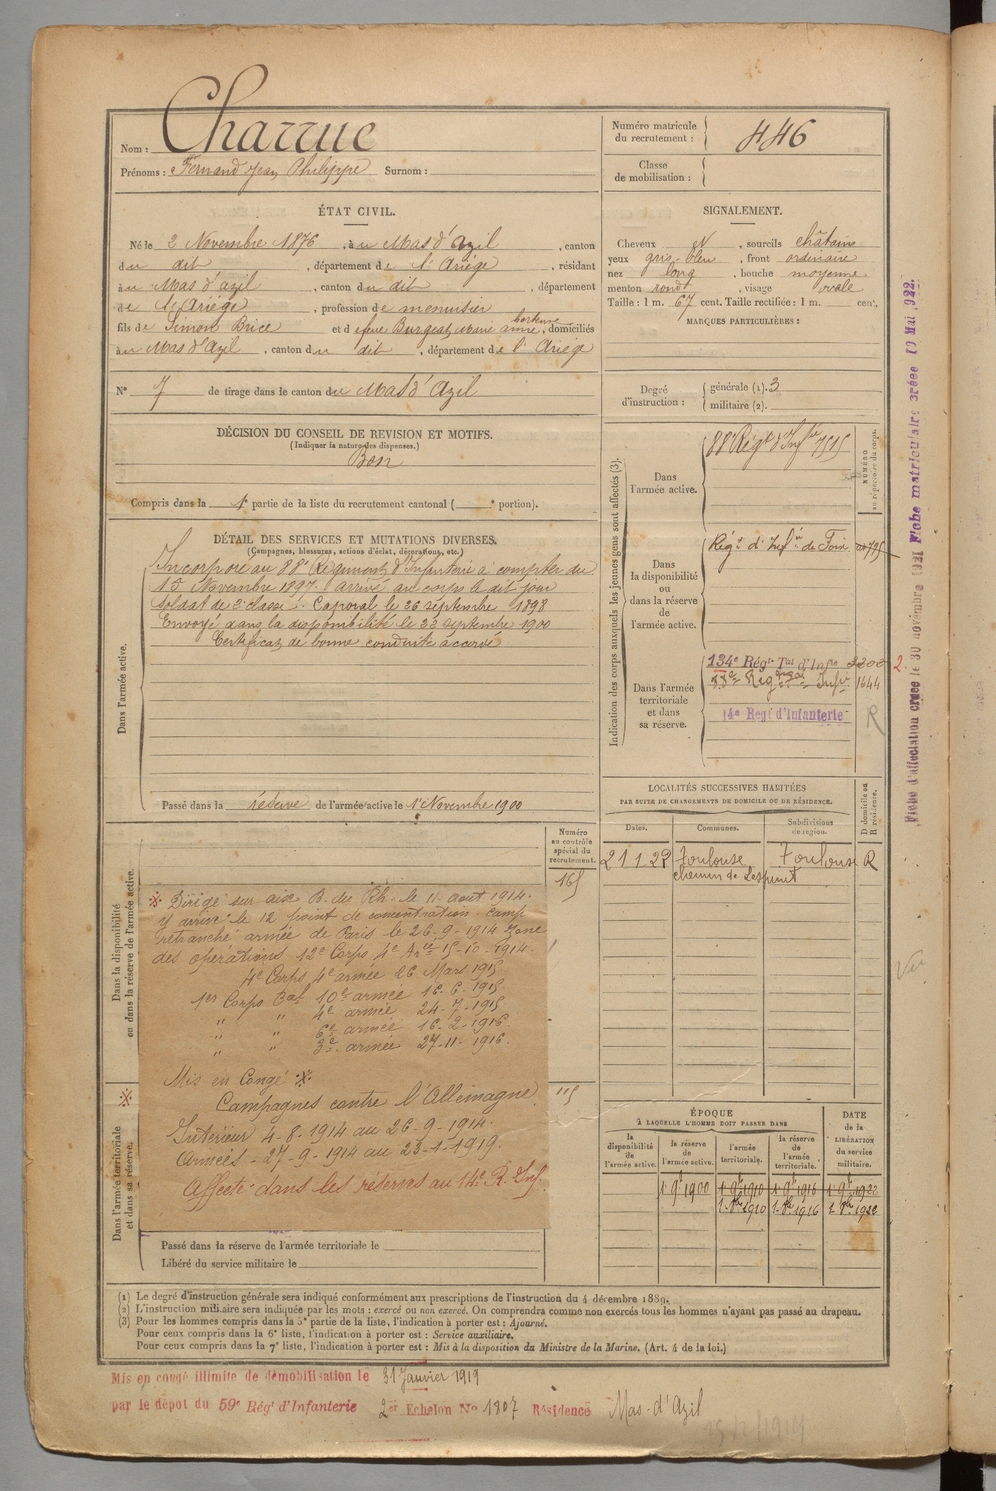 Nom : Charrue
Prénoms : Fernand Jean Philippe Surnom :
Numéro matricule du recrutement : 446
Classe de mobilisation :
ÉTAT CIVIL.
Né le 2 Novembre 1876, à u Mas d'azil, canton
du dit, département de l'Ariège, résidant
au Mas d'azil, canton du dit, département
de l'Ariège, profession de menuisier
fils de Simon Brice et de feue Burgeat, Marie anne, domiciliés
au Mas d'azil, canton du dit, département de l'Ariège
SIGNALEMENT.
Cheveux N, sourcils châtains
yeux gris-bleu, front ordinaire
nez long, bouche moyenne
menton rond, visage ovale
Taille : 1 m. 67 cent. Taille rectifiée : 1 m. cent.
MARQUES PARTICULIÈRES :
N° 7 de tirage dans le canton du Mas d'Azil
Degré d'instruction : générale (1). 3
militaire (2).
DÉCISION DU CONSEIL DE REVISION ET MOTIFS.
(Indiquer la nature des dispenses.)
Bon
Compris dans la 1e partie de la liste du recrutement cantonal ( e portion).
DÉTAIL DES SERVICES ET MUTATIONS DIVERSES.
(Campagnes, blessures, actions d'éclat, décorations, etc.)
Dans l'armée active.
Incorporé au 88e Régiment d'Infanterie à compter du
15 Novembre 1897. arrivé au corps le dit jour
soldat de 2e classe. Caporal le 26 septembre 1898
Envoyé dans la disponibilité le 22 septembre 1900
Certificat de bonne conduite accordé
Passé dans la réserve de l'armée active le 1er Novembre 1900
Indication des corps auxquels les jeunes gens sont affectés (3).
NUMÉRO au répertoire du corps.
Dans l'armée active.
88e Régt d'Infie
Dans la disponibilité ou dans la réserve de l'armée active.
Régt d'Infie de Foix
Dans l'armée territoriale et dans sa réserve.
134e Régt Tal d'Infie 2200 2.
1644
14e Regt d'Infanterie R
LOCALITÉS SUCCESSIVES HABITÉES
PAR SUITE DE CHANGEMENTS DE DOMICILE OU DE RÉSIDENCE.
D domicile ou R résidence.
Dates. Communes. Subdivisions de région.
21 1 22 Toulouse Toulouse R
chemin de Lespinet
Numéro au contrôle spécial du recrutement.
165
Dans la disponibilité ou dans la réserve de l'armée active.
Dirigé sur aix B. du Rh. le 11 aout 1914.
y arrivé le 12 point de concentration camp
retranché armée de Paris le 26-9-1914 zone
des opérations 12e Corps 4e Arée 15-10-1914.
4e Corps 4e armée 26 Mars 1915
1er Corps Cal 10e armée 16-6-1915
" " 4e armée 24-7-1915
" " 6e armée 16-2-1916
" " 3e armée 27-11-1916.
Mis en Congé
Campagnes contre l'Allemagne
115
Intérieur 4-8-1914 au 26-9-1914.
Armées - 27-9-1914 au 23-1-1919.
Affecté dans les réserves au 14e R. Inf.
Dans l'armée territoriale et dans sa réserve.
Passé dans la réserve de l'armée territoriale le
Libéré du service militaire le
ÉPOQUE
À LAQUELLE L'HOMME DOIT PASSER DANS
DATE de la LIBÉRATION du service militaire.
la disponibilité de l'armée active. la réserve de l'armée active. l'armée territoriale. la réserve de l'armée territoriale.
1 9b 1900 1 9b 1910 1 9b 1916 1 9b 1922
(1) Le degré d'instruction générale sera indiqué conformément aux prescriptions de l'instruction du 4 décembre 1889.
(2) L'instruction militaire sera indiquée par les mots : exercé ou non exercé. On comprendra comme non exercés tous les hommes n'ayant pas passé au drapeau.
(3) Pour les hommes compris dans la 5e partie de la liste, l'indication à porter est : Ajourné.
Pour ceux compris dans la 6e liste, l'indication à porter est : Service auxiliaire.
Pour ceux compris dans la 7e liste, l'indication à porter est : Mis à la disposition du Ministre de la Marine. (Art. 4 de la loi.)
Mis en congé illimité de démobilisation le 31 Janvier 1919
par le dépot du 59e Régt d'Infanterie 2er Echelon No 1807 Résidence Mas-d'Azil
Fiche d'affectation créée le 30 novembre 1921 Fiche matriculaire créée 10 Mai 1922.
Vu